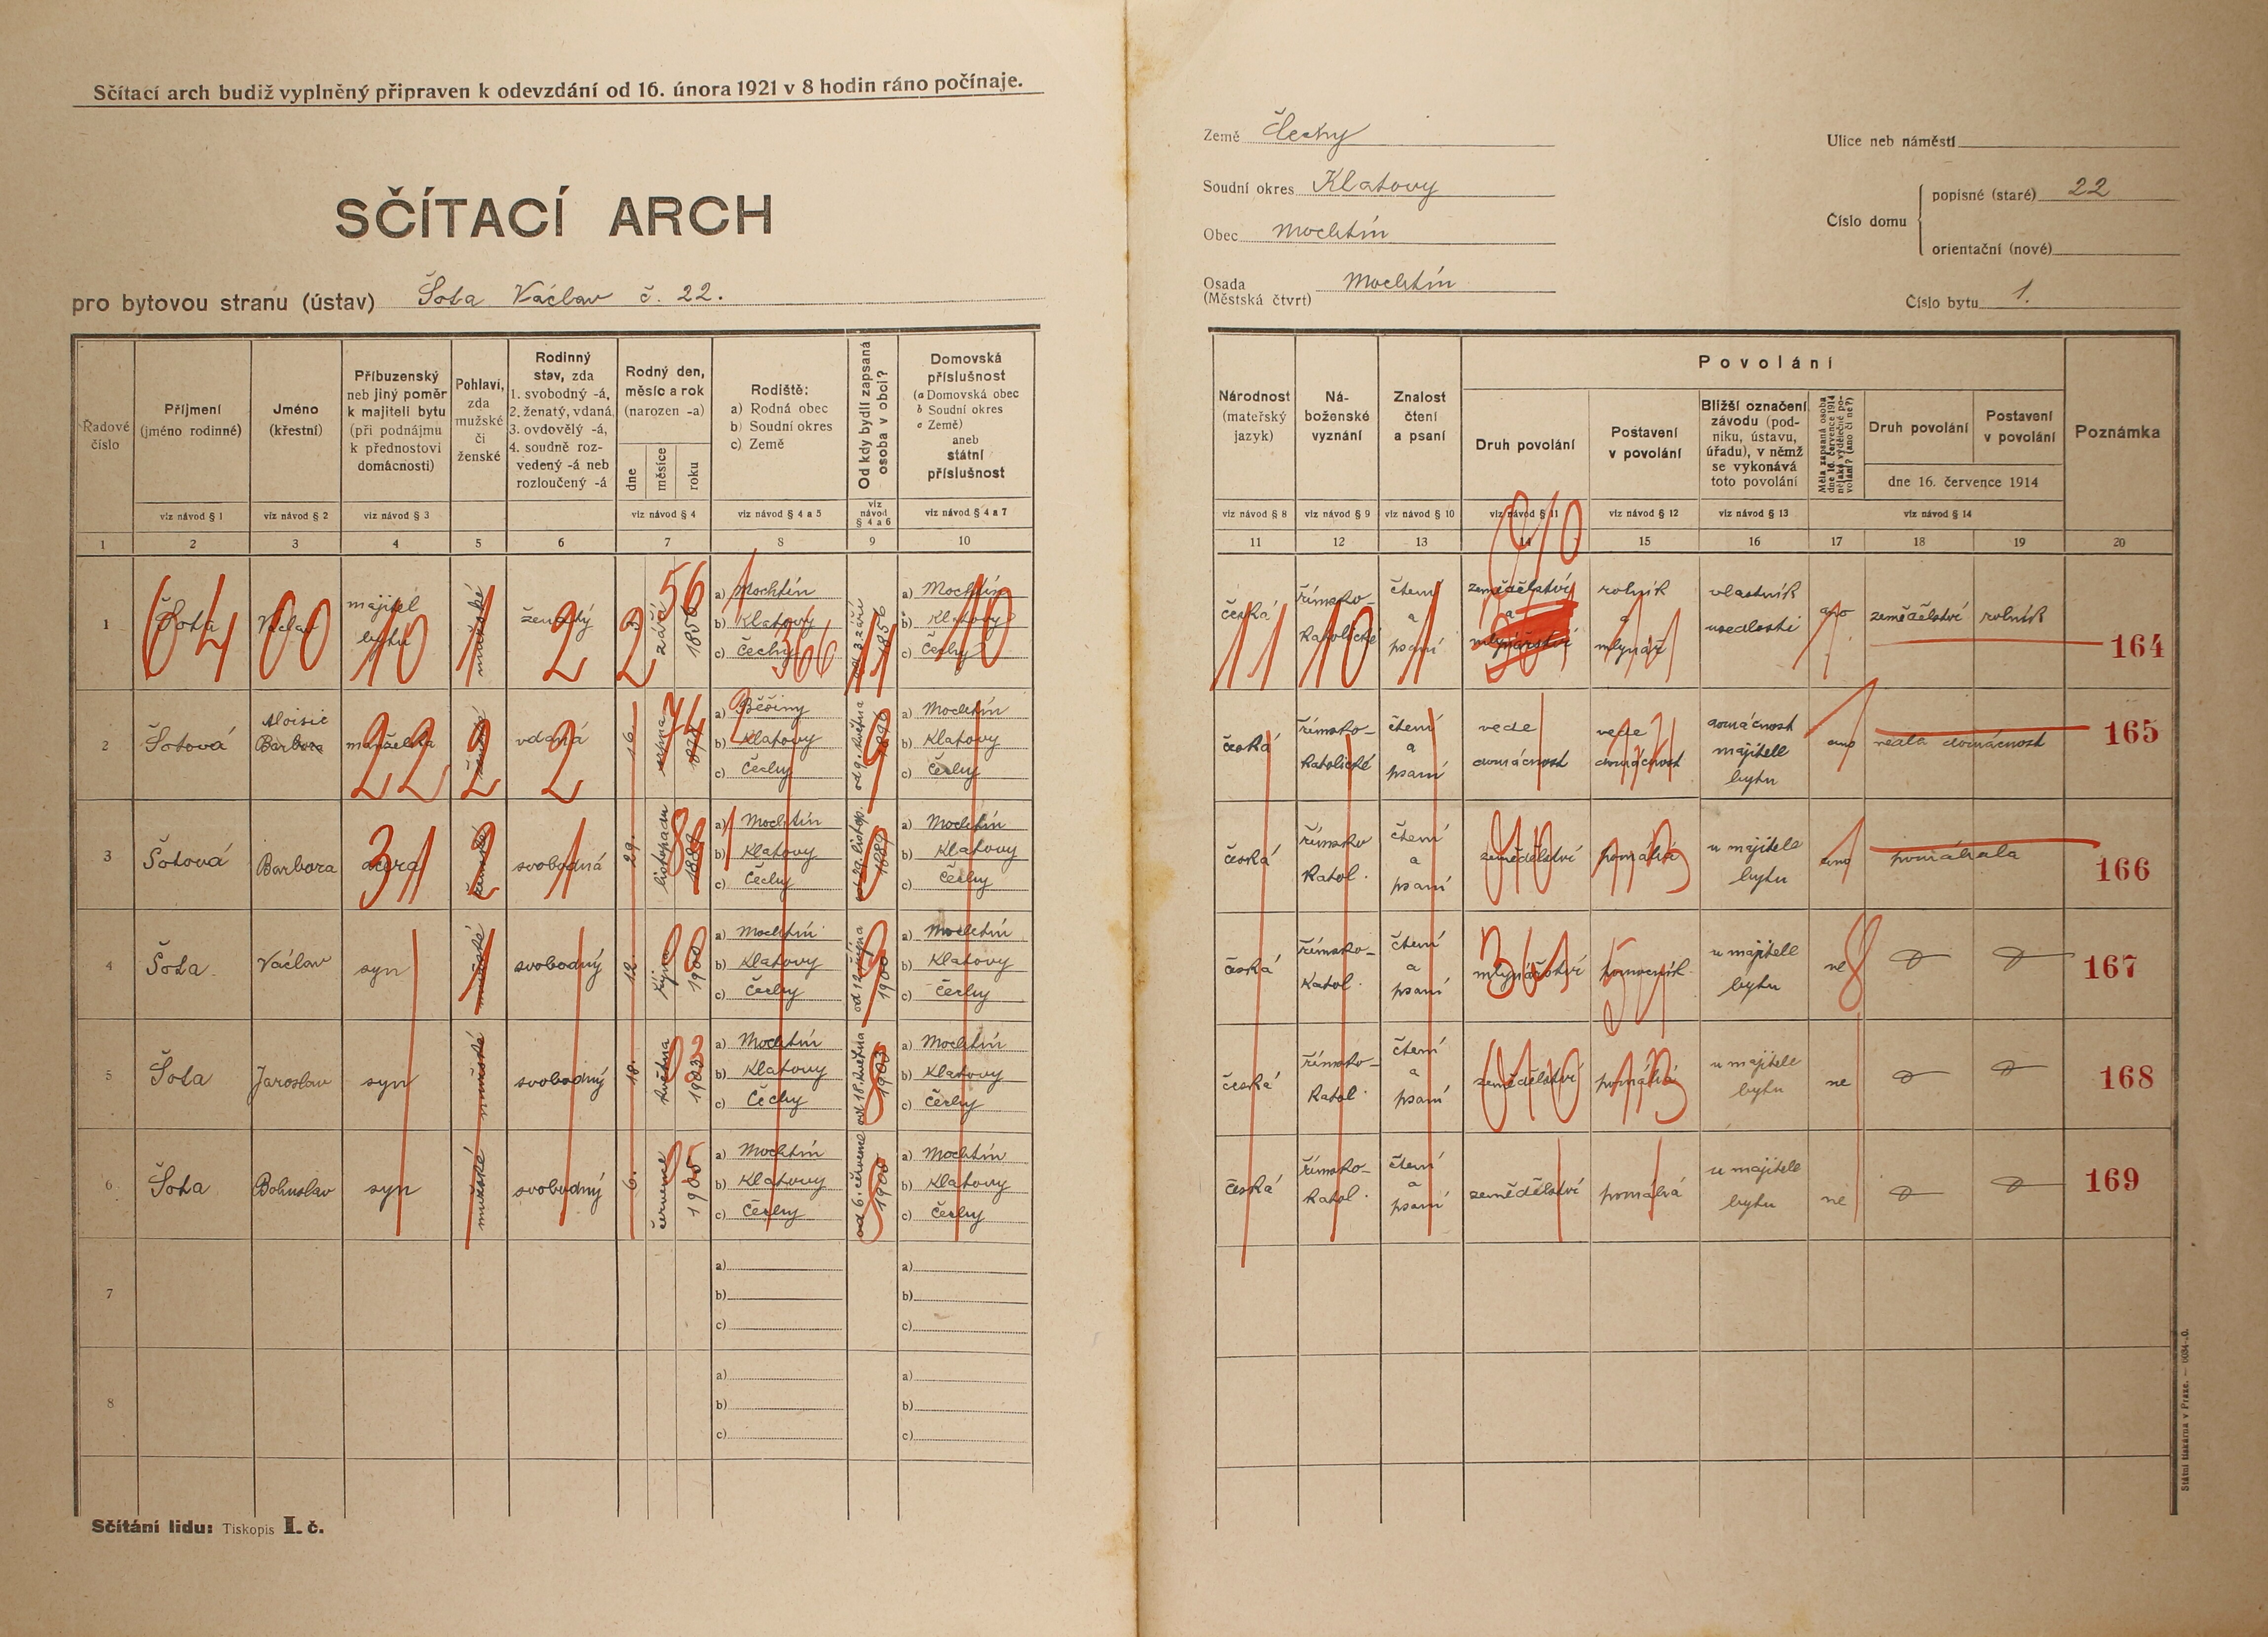 Sčítací arch budiž vyplněný připraven k odevzdání od 16. února 1921 v 8 hodin ráno počínaje.
SČÍTACÍ ARCH
pro bytovou stranu (ústav) Šota Václav č. 22.
Země Čechy
Soudní okres Klatovy
Obec Mochtín
Osada (Městská čtvrt) Mochtín
Ulice neb náměstí
Číslo domu
popisné (staré) 22
orientační (nové)
Číslo bytu 1.
Řadové číslo
Příjmení (jméno rodinné)
Jméno (křestní)
Příbuzenský neb jiný poměr k majiteli bytu (při podnájmu k přednostovi domácnosti)
Pohlaví, zda mužské či ženské
Rodinný stav, zda 1. svobodný -á, 2. ženatý, vdaná, 3. ovdovělý -á, 4. soudně rozvedený -á neb rozloučený -á
Rodný den, měsíc a rok (narozen -a)
dne měsíce roku
Rodiště: a) Rodná obec b) Soudní okres c) Země
Od kdy bydlí zapsaná osoba v obci?
Domovská příslušnost (a Domovská obec b Soudní okres c Země) aneb státní příslušnost
Národnost (mateřský jazyk)
Náboženské vyznání
Znalost čtení a psaní
Povolání
Druh povolání
Postavení v povolání
Bližší označení závodu (podniku, ústavu, úřadu), v němž se vykonává toto povolání
Měla zapsaná osoba dne 16. července 1914 nějaké výdělečné povolání? (ano či ne?)
Druh povolání
Postavení v povolání
dne 16. července 1914
Poznámka
viz návod § 1 viz návod § 2 viz návod § 3 viz návod § 4 viz návod § 4 a 5 viz návod § 4 a 6 viz návod § 4 a 7
viz návod § 8 viz návod § 9 viz návod § 10 viz návod § 11 viz návod § 12 viz návod § 13 viz návod § 14
1 2 3 4 5 6 7 8 9 10
11 12 13 14 15 16 17 18 19 20
1 Šota Václav majitel bytu mužské ženatý 3 září 1856 a) Mochtín b) Klatovy c) Čechy od 3 září 1856 a) Mochtín b) Klatovy c) Čechy
česká římsko-katolické čtení a psaní zemědělství a mlynářství rolník a mlynář vlastník usedlosti ano zemědělství rolník 164
2 Šotová Aloisie Barbora manželka ženské vdaná 16. srpna 1874 a) Běšiny b) Klatovy c) Čechy od 9. května 1896 a) Mochtín b) Klatovy c) Čechy
česká římsko-katolické čtení a psaní vede domácnost vede domácnost domácnost majitele bytu ano vedla domácnost 165
3 Šotová Barbora dcera ženské svobodná 29. listopadu 1889 a) Mochtín b) Klatovy c) Čechy od 29 listop. 1889 a) Mochtín b) Klatovy c) Čechy
česká římsko katol. čtení a psaní zemědělství pomáhá u majitele bytu ano pomáhala 166
4 Šota Václav syn mužské svobodný 12. října 1900 a) Mochtín b) Klatovy c) Čechy od 12 října 1900 a) Mochtín b) Klatovy c) Čechy
česká římsko-katol. čtení a psaní mlynářství pomocník u majitele bytu ne 167
5 Šota Jaroslav syn mužské svobodný 18. května 1903 a) Mochtín b) Klatovy c) Čechy od 18. května 1903 a) Mochtín b) Klatovy c) Čechy
česká římsko-katol. čtení a psaní zemědělství pomáhá u majitele bytu ne 168
6 Šota Bohuslav syn mužské svobodný 6. července 1905 a) Mochtín b) Klatovy c) Čechy od 6. července a) Mochtín b) Klatovy c) Čechy
česká římsko-katol. čtení a psaní zemědělství pomáhá u majitele bytu ne 169
7 a) b) c) a) b) c)
8 a) b) c) a) b) c)
Sčítání lidu: Tiskopis I. č.
Státní tiskárna v Praze.